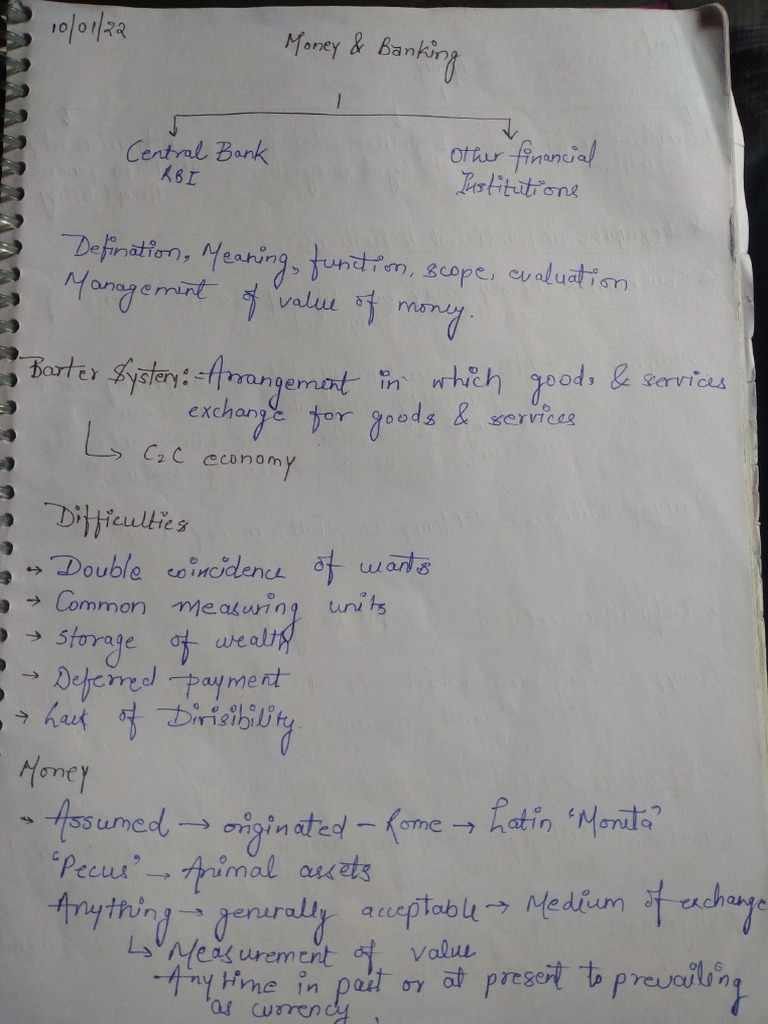 10/01/22
Money & Banking
Central Bank
RBI
Other financial
Institutions
Defination, Meaning, function, scope, evaluation
Management of value of money.
Barter System:- Arrangement in which goods & services
exchange for goods & services
↳ C2C economy
Difficulties
→ Double coincidence of wants
→ Common measuring units
→ Storage of wealth
→ Deferred payment
→ Lack of Divisibility.
Money
→ Assumed → originated - Rome → Latin "Moneta"
"Pecus" → Animal assets
Anything → generally acceptable → Medium of exchange
↳ Measurement of value
Anytime in past or at present to prevailing
as currency.